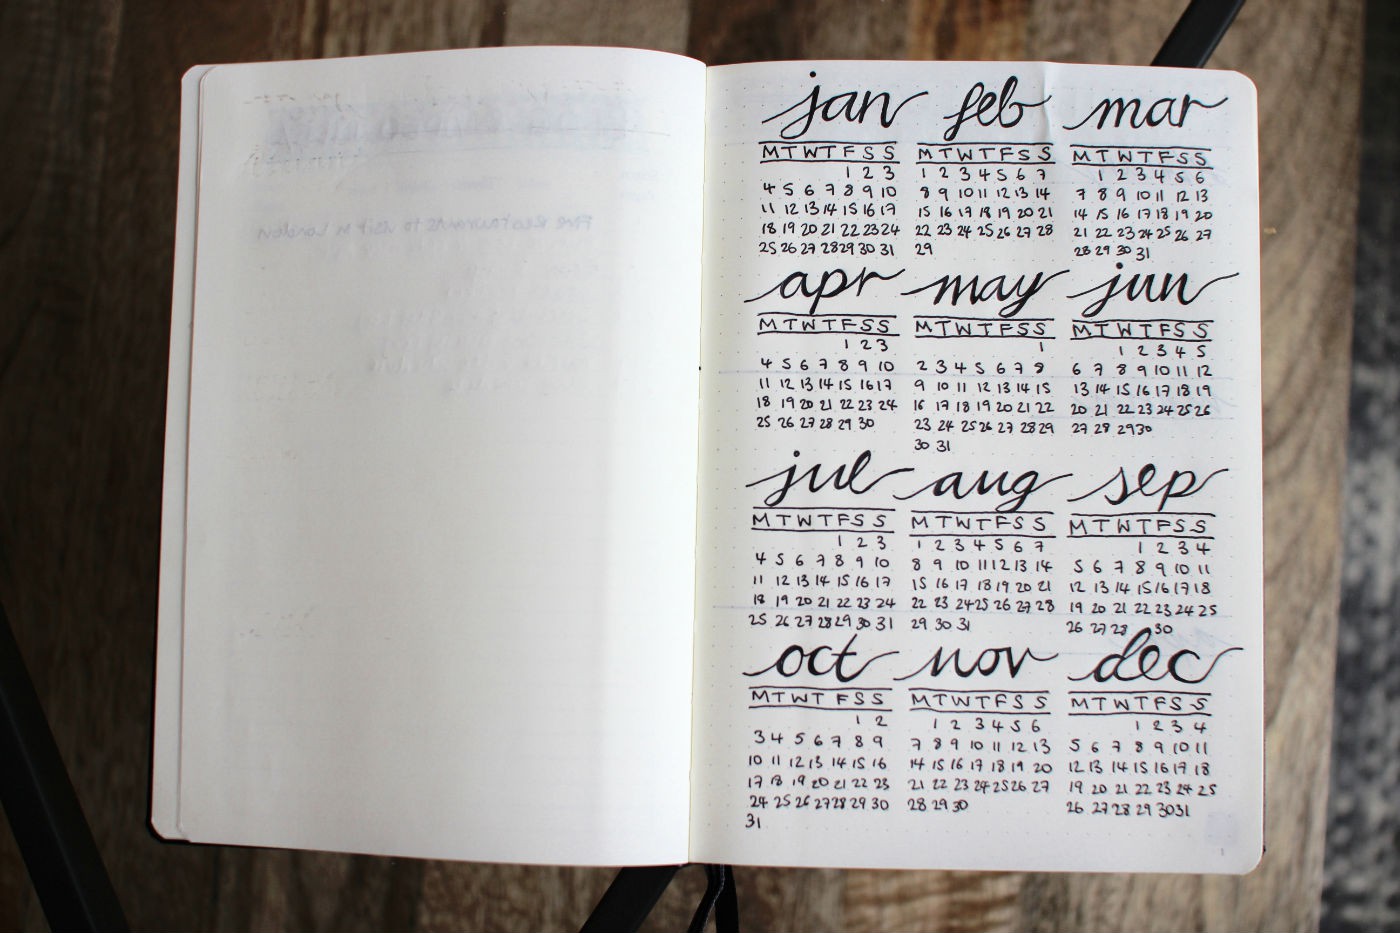 jan
M T W T F S S
1 2 3
4 5 6 7 8 9 10
11 12 13 14 15 16 17
18 19 20 21 22 23 24
25 26 27 28 29 30 31
feb
M T W T F S S
1 2 3 4 5 6 7
8 9 10 11 12 13 14
15 16 17 18 19 20 21
22 23 24 25 26 27 28
29
mar
M T W T F S S
1 2 3 4 5 6
7 8 9 10 11 12 13
14 15 16 17 18 19 20
21 22 23 24 25 26 27
28 29 30 31
apr
M T W T F S S
1 2 3
4 5 6 7 8 9 10
11 12 13 14 15 16 17
18 19 20 21 22 23 24
25 26 27 28 29 30
may
M T W T F S S
1
2 3 4 5 6 7 8
9 10 11 12 13 14 15
16 17 18 19 20 21 22
23 24 25 26 27 28 29
30 31
jun
M T W T F S S
1 2 3 4 5
6 7 8 9 10 11 12
13 14 15 16 17 18 19
20 21 22 23 24 25 26
27 28 29 30
jul
M T W T F S S
1 2 3
4 5 6 7 8 9 10
11 12 13 14 15 16 17
18 19 20 21 22 23 24
25 26 27 28 29 30 31
aug
M T W T F S S
1 2 3 4 5 6 7
8 9 10 11 12 13 14
15 16 17 18 19 20 21
22 23 24 25 26 27 28
29 30 31
sep
M T W T F S S
1 2 3 4
5 6 7 8 9 10 11
12 13 14 15 16 17 18
19 20 21 22 23 24 25
26 27 28 30
oct
M T W T F S S
1 2
3 4 5 6 7 8 9
10 11 12 13 14 15 16
17 18 19 20 21 22 23
24 25 26 27 28 29 30
31
nov
M T W T F S S
1 2 3 4 5 6
7 8 9 10 11 12 13
14 15 16 17 18 19 20
21 22 23 24 25 26 27
28 29 30
dec
M T W T F S S
1 2 3 4
5 6 7 8 9 10 11
12 13 14 15 16 17 18
19 20 21 22 23 24 25
26 27 28 29 30 31
1